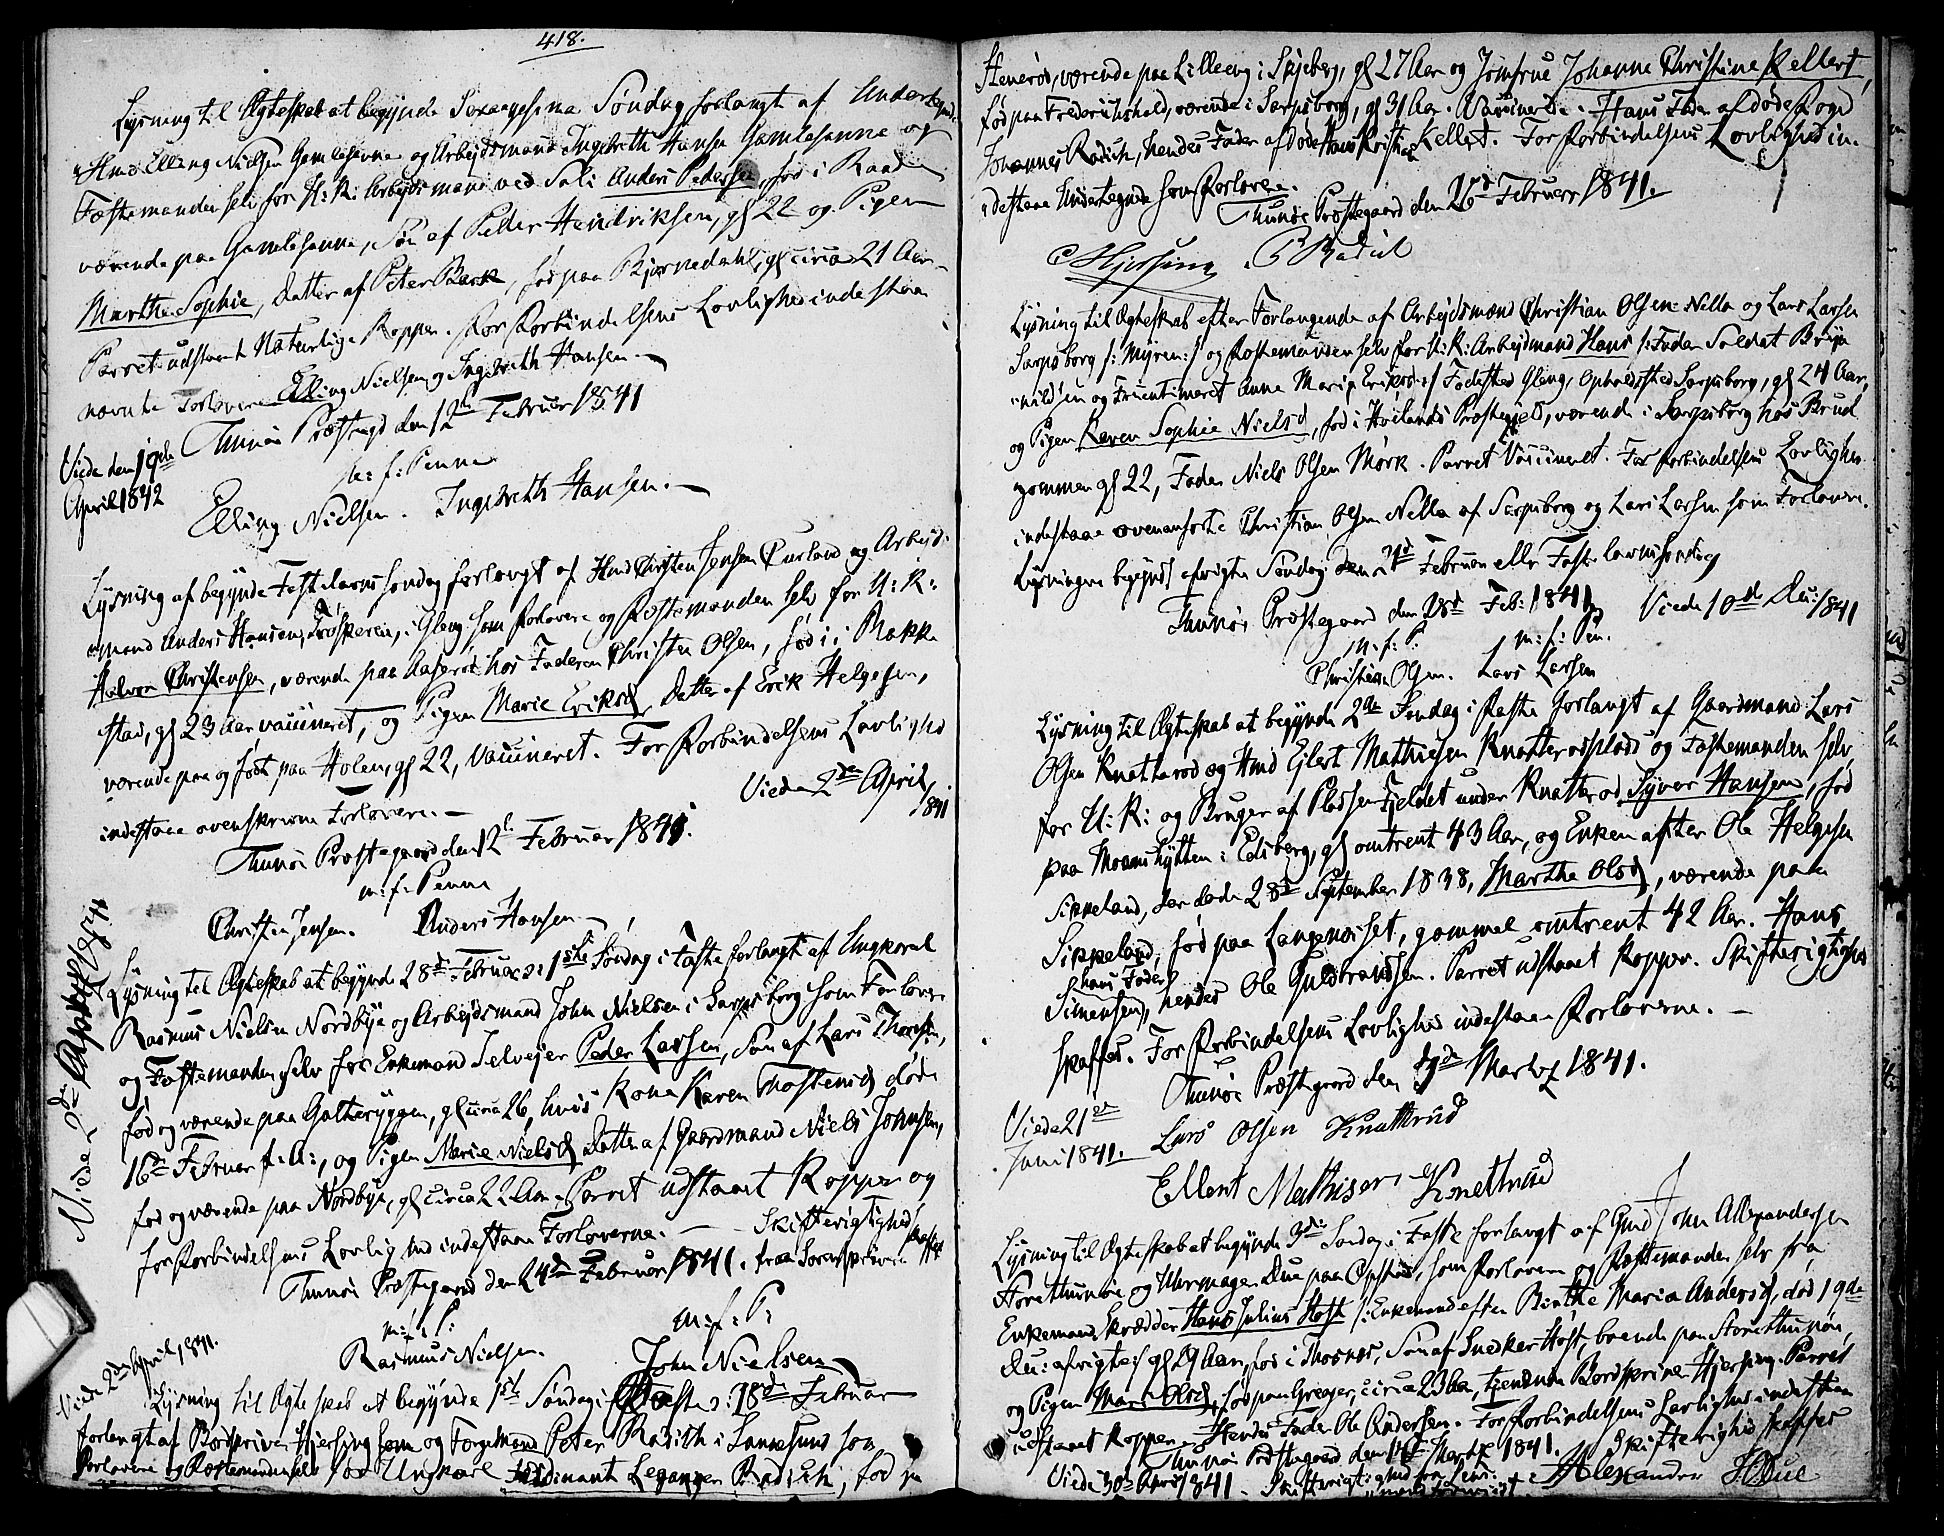 418.
Lysning til Ægteskab at begynde Sexagesima Søndag forlangt af
Hmd Elling Nielsen Gamlesanne og Arbeidsmand Ingebreth Hansen Gamlesanne og
Fæstemanden selv for U: K: Arbeidsmand ved Soli Anders Pedersen, fød i Raade
værende paa Gamlesanne, Søn af Peder Hendriksen, gl 22 og Pigen
Marthe Sophie, Datter af Peter, fød paa Bjørnedahl, gl circa 21 Aar
Parret udstaaet Naturlige Kopper. For Forbindelsens Lovlighed indestaa
nævnte Forlovere Elling Nielsen og Ingebreth Hansen. —
Thunøe Præstegd den 12te Februar 1841
Viede den 19de
April 1842
m: f: Penne
Elling Nielsen. Ingebreth Hansen. —
Lysning at begynde Fastelavns søndag forlangt af Hmd Christen Jensen Curland og Arbeids-
mand Anders Hansen, i Gleng som Forlovere og Fæstemanden selv for U: K:
Halvor Christensen, værende paa hos Faderen Christen Olsen, fød i Rakke-
stad, gl 23 Aar vaccineret, og Pigen Marie Eriksd, Datter af Erik Helgesen,
værende paa og født paa Holen, gl 22, vaccineret. For Forbindelsens Lovlighed
indestaae ovenskrevne Forlovere. —
Viede 2den April
1841
Thunøe Præstegaard den 12te Februar 1841.
m: f: Penne
Christen Jensen. Anders Hansen —
Viede 2den April 1841
Lysning til Ægteskab at begynde 28de Februar 1ste Søndag i Faste forlangt af Ungkarl
Rasmus Nielsen Nordbye og Arbeidsmand John Nielsen i Sarpsborg som Forlovere
og Fæstemanden selv for Enkemand Selveier Peder Larsen, Søn af Lars Thoresen,
fød og værende paa Galteryggen, gl circa 26, hvis Kone Karen Thostensd døde
16de Februar f: A:, og Pigen Marie Nielsd Datter af Gaardmand Niels Johnsen,
fød og værende paa Nordbye, gl circa 22 Aar. Parret udstaaet Kopper og
for Forbindelsens Lovlighed indestaa Forloverne. — Skifterigtighed skaffet
Thunøe Præstegaard den 24de Februar 1841. fra Sorenskriveren
m: f: P: m: f: P:
Rasmus Nielsen. John Nielsen
Viede 2den April 1841.
Lysning til Ægteskab at begynde 1ste Søndag i Faste 28de Februar
forlangt af Bødskriver Hjersing som og Færgemand Peter Radith i Sannesund som
Forlovere og Fæstemanden selv for Ungkarl Ferdinant Leganger Radich, fød paa
Henerød, værende paa Lilleeng i Skjeberg, gl 27 Aar og Jomfrue Johanne Christine Kellert,
fød paa Frederikshald, værende i Sarpsborg, gl 31 Aar. Vaccinerede. Hans Fader afdøde Foged
Johannes Radich, hendes Fader afdøde Hans Kristian Kellert. For Forbindelsens Lovlighed in-
destaae Undertegnede som Forlovere.
Thunøe Præstegaard den 26de Februar 1841.
C Hjersing P Radich
Lysning til Ægteskab efter Forlangende af Arbeidsmænd Christian Olsen Nella og Lars Larsen
Sarpsborg /: Myren :/ og Fæstemanden selv for U: K: Arbeidsmand Hans /: Fader Soldat
og Fruentimeret Anne Maria Eriksd :/ Fødested Gleng, Opholdssted Sarpsborg, gl 24 Aar,
og Pigen Karen Sophie Nielsd, fød i Høilands Præstegjeld, værende i Sarpsborg hos Brud
gommen gl 22, Fader Niels Olsen Mørk. Parret Vaccineret. For Forbindelsens Lovlighed
indestaae ovenanførte Christian Olsen Nella af Sarpsborg og Lars Larsen som Forlovere.
Lysningen begyndt afvigte Søndag den 21de Februar eller Fastelavnssøndag
Thunøe Præstegaard den 28de Feb: 1841 Viede 10de Dec: 1841
m: f: P. m: f: Pen.
Christian Olsen. Lars Larsen
Lysning til Ægteskab at begynde 2den Søndag i Faste forlangt af Gaardmand Lars
Olsen Knatterød og Hmd Ejlert Mathiesen Knatterødplads og Fæstemanden selv
for U: K: og Bruger af Pladsen Fjeldet under Knatterød Syver Hansen, fød
paa Moenshytten i Edsberg, gl omtrent 43 Aar, og Enken after Ole Helgesen
Sikkeland, der døde 28de September 1838, Marthe Olsd, værende paa
Sikkeland, fød paa Langenæsset, gammel omtrent 42 Aar. Hans
hans Fader
Simensen, hendes Ole Guldbrandsen. Parret udstaaet Kopper. Skifterigtighed
skaffes. For Forbindelsens Lovlighed indestaae Forloverne. —
Thunøe Præstegaard den 3die Marts 1841.
Viede 21de
Juni 1841.
Lars Olsen Knatterud
Ellert Mathisen Knettrud
Lysning til Ægteskab at begynde 3die Søndag i Faste forlangt af Gmd John Allexandersen
Storethunøe og Uhrmager Due paa Opstad, som Forlovere og Fæstemanden selv fra
Enkemand Skrædder Hans Julius Høst /: Enkemand efter Birthe Maria Andersd, død 19de
Dec: afvigte :/ gl 29 Aar, fød i Thosnes, Søn af Snedker Høst, boende paa Storethunøe,
og Pigen Mari Olsd, fød paa Greager, circa 23 Aar, tjenende Bødskriver Hjersing. Parret
udstaaet Kopper. Hendes Fader Ole Andersen. For Forbindelsens Lovlighed indestaae
Thunøe Præstegaard den 14de Marts 1841. Skifterighed skaffes
Viede 30te April 1841. Alexander H Due